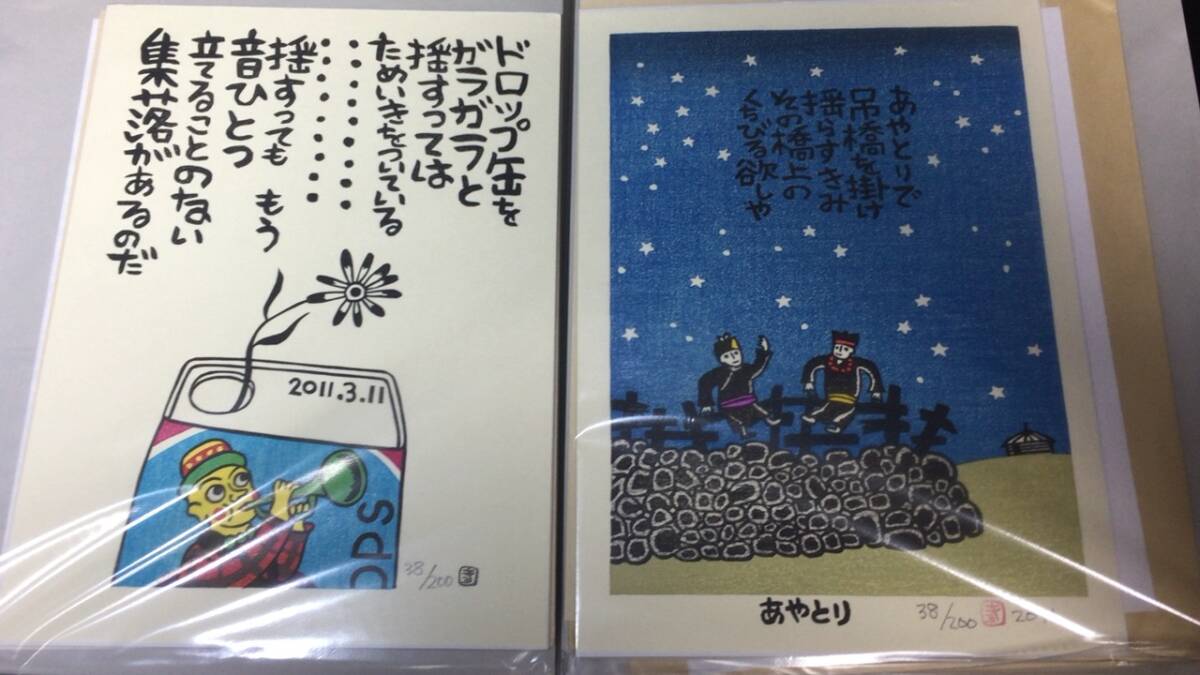 ドロップ缶を
ガラガラと
揺すっては
ためいきをついている
揺すっても もう
音ひとつ
立てることのない
集落があるのだ
2011.3.11
OPS
38/200
あやとりで
吊橋を掛け
揺らすきみ
その橋上の
くちびる欲しや
谷
あやとり
38/200